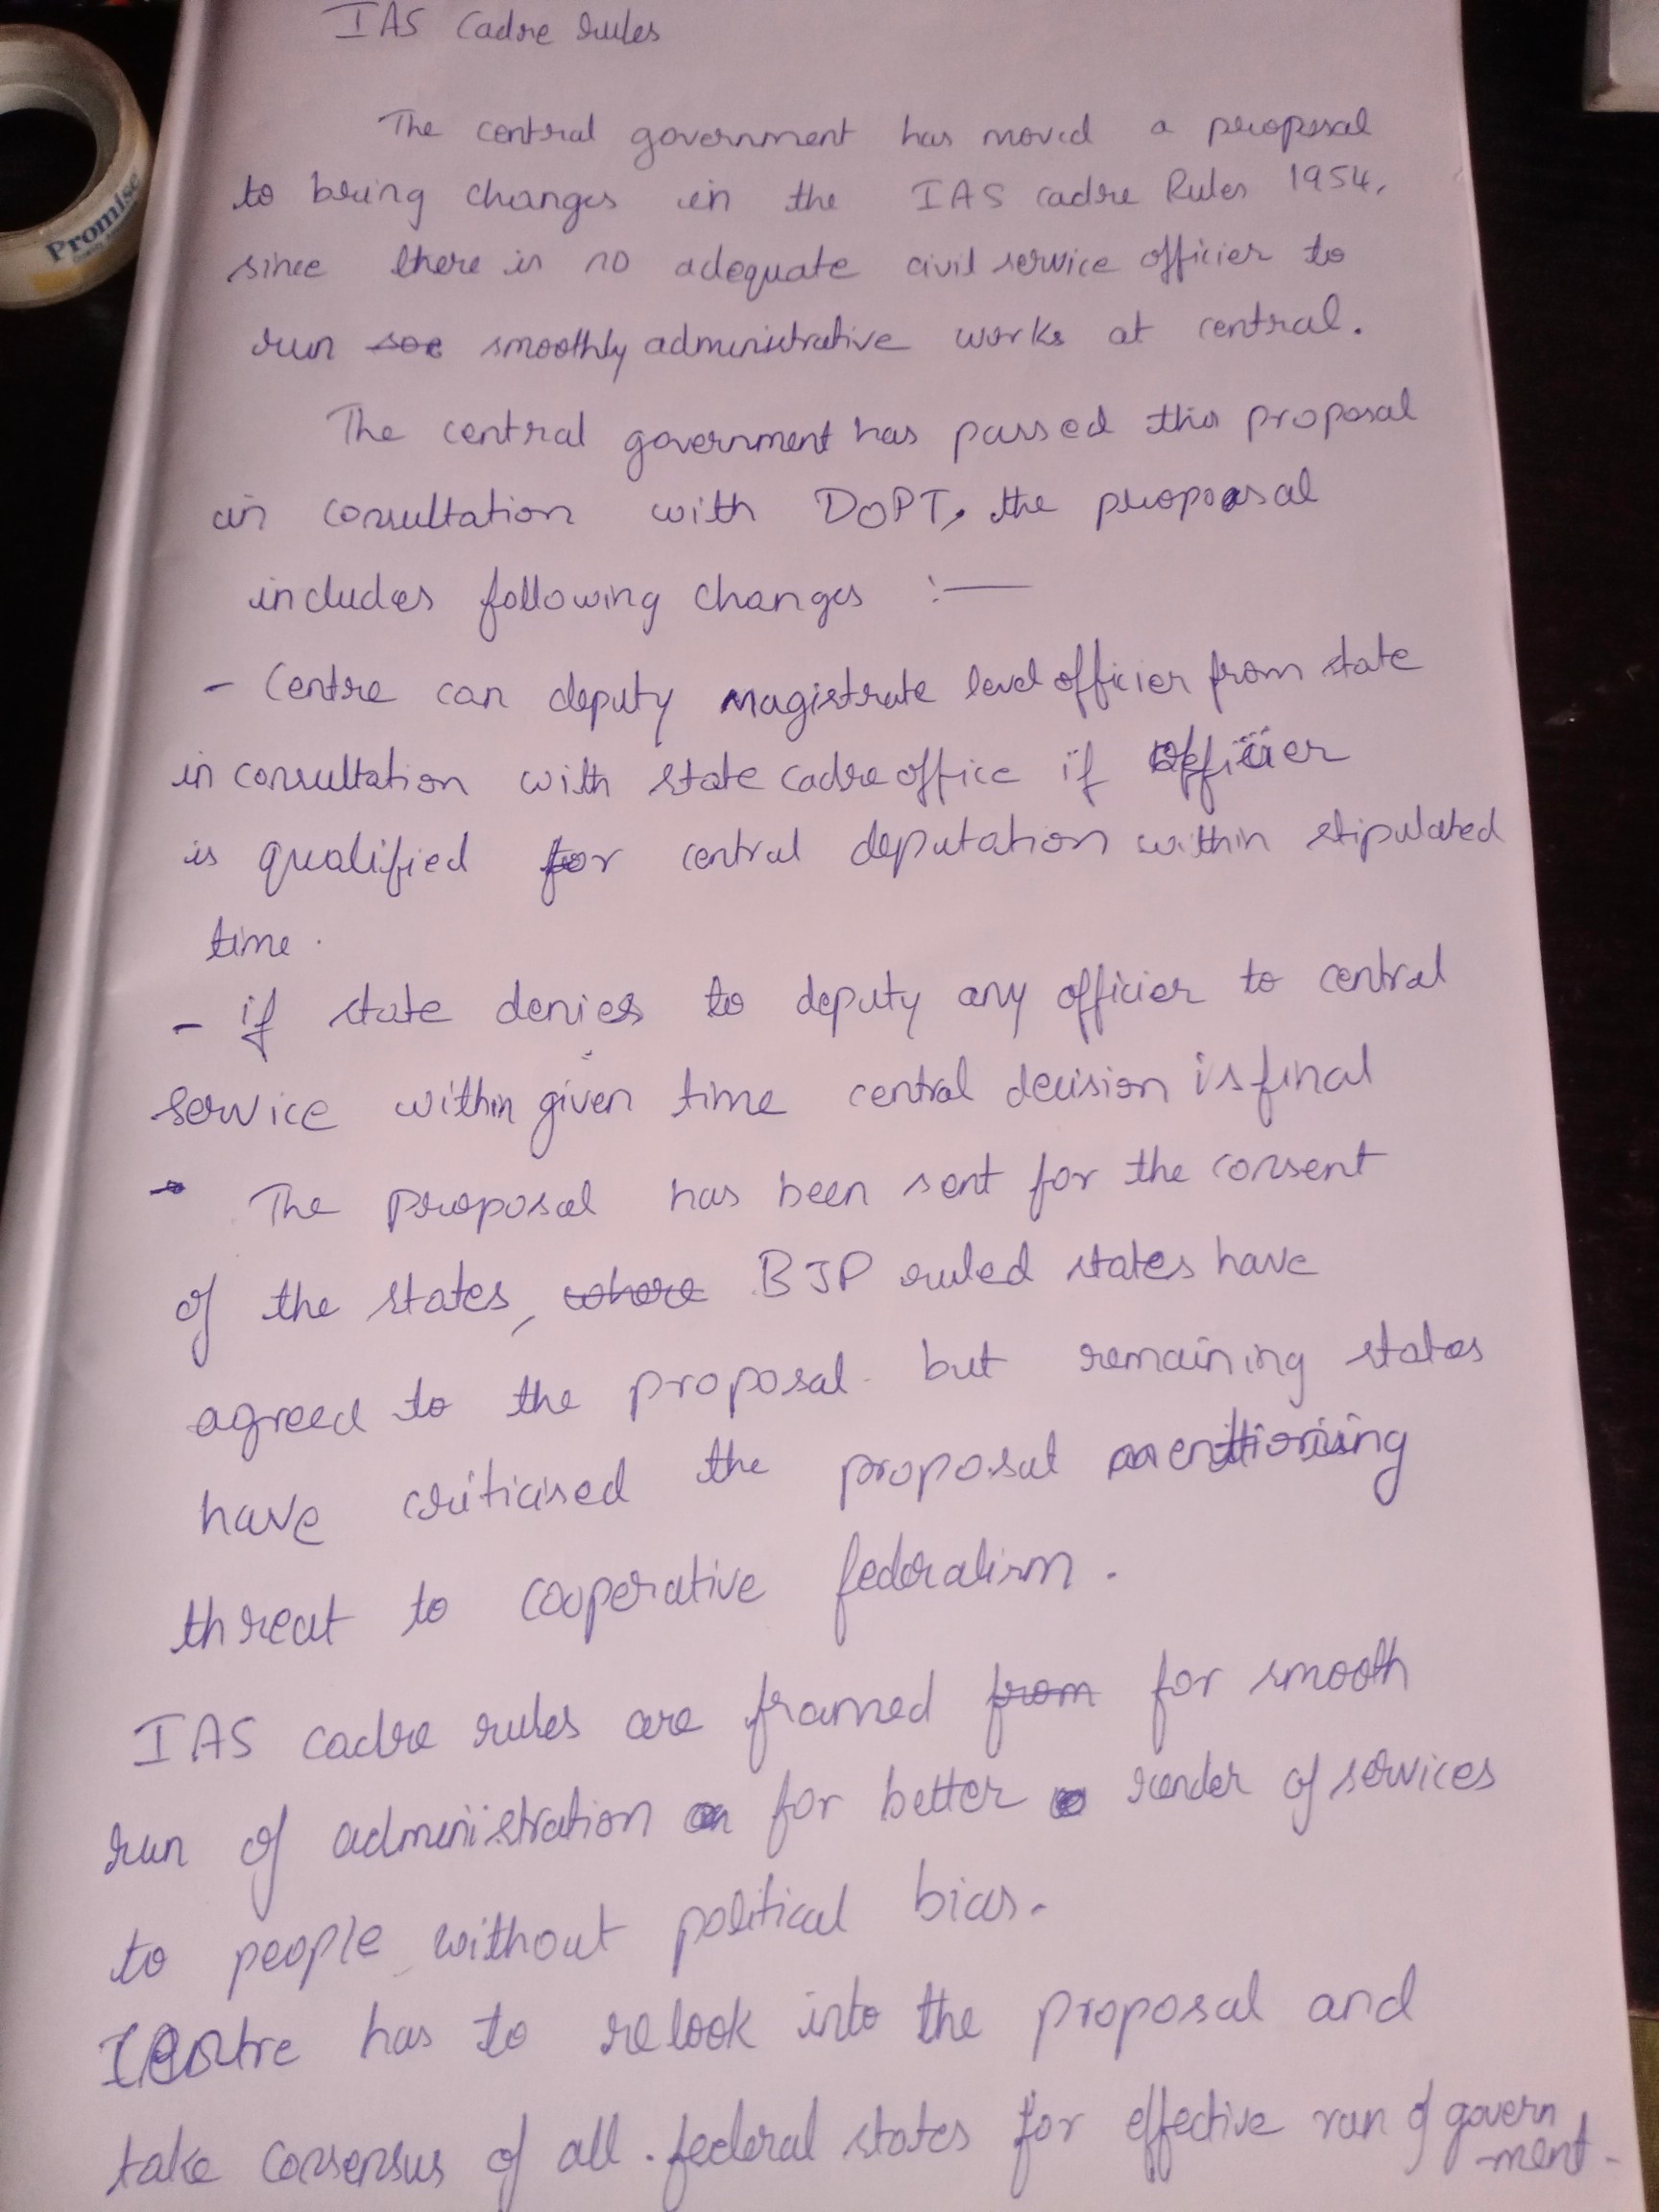 IAS Cadre rules
The central government has moved a proposal
to bring changes in the IAS cadre Rules 1954,
since there is no adequate civil service officier to
run smoothly administrative works at central.
The central government has passed this proposal
in consultation with DOPT, the proposal
includes following changes :—
- Centre can deputy magistrate level officier from state
in consultation with state cadre office if officier
is qualified for central deputation within stipulated
time.
- if state denies to deputy any officier to central
service within given time central decision is final
- The proposal has been sent for the consent
of the states, BJP ruled states have
agreed to the proposal. but remaining states
have criticised the proposal mentioning
threat to cooperative federalism.
IAS cadre rules are framed for smooth
run of administration for better render of services
to people without political bias.
Centre has to relook into the proposal and
take consensus of all federal states for effective run of govern
-ment.
Promise